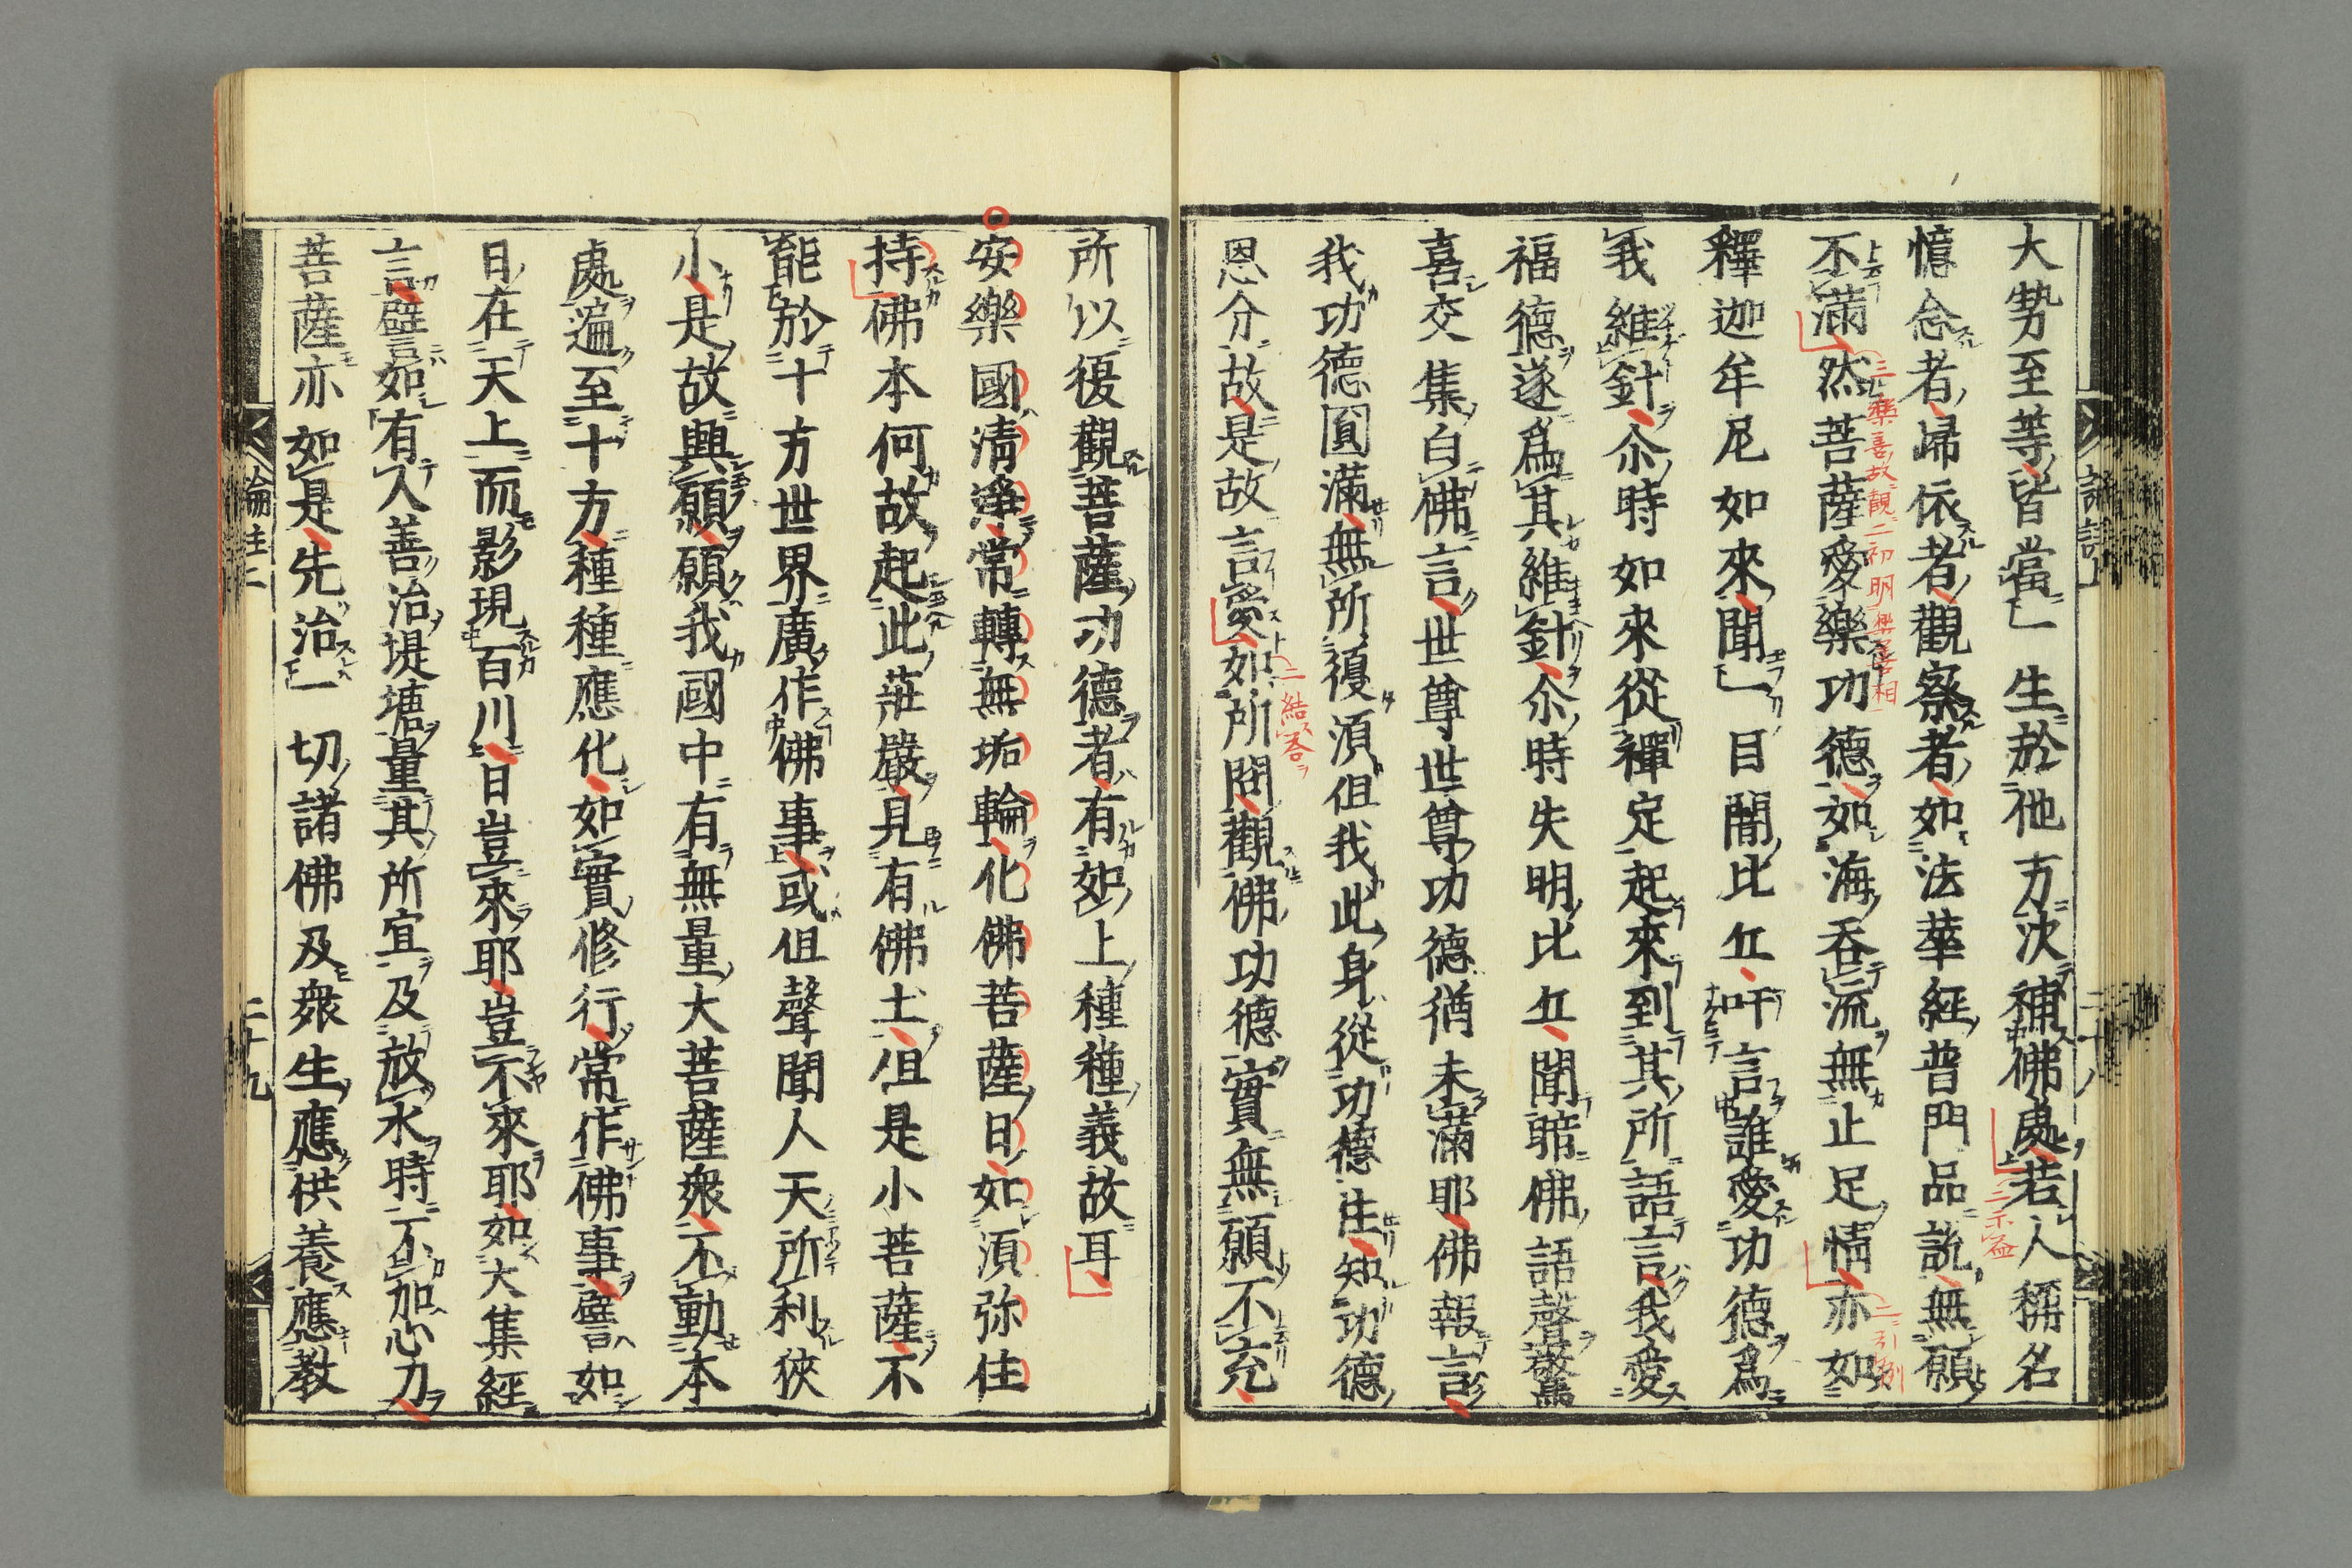 大勢至等皆當一生於他方次補佛處若人稱名
憶念者歸依者觀察者如法華經普門品說無願
不滿然菩薩愛樂功德如海吞流無止足情亦如
釋迦牟尼如來聞一目闇比丘吁言誰愛功德爲
我維針尒時如來從禪定起來到其所語言我愛
福德遂爲其維針尒時失明比丘聞暗佛語聲驚
喜交集白佛言世尊世尊功德猶未滿耶佛報言
我功德圓滿無所復湏但我此身從功德生知功德
恩分故是故言愛如所問觀佛功德實無願不充
二示益
三樂喜故觀二初明樂喜相
二引例
二結答
所以復觀菩薩功德者有如上種種義故耳
安樂國清淨常轉無垢輪化佛菩薩日如湏弥住
持佛本何故起此莊嚴見有佛土但是小菩薩不
能於十方世界廣作佛事或但聲聞人天所利狹
小是故興願願我國中有無量大菩薩衆不動本
處遍至十方種種應化如實修行常作佛事譬如
日在天上而影現百川日豈來耶豈不來耶如大集經
言譬如有人善治堤塘量其所宜及放水時不加心力
菩薩亦如是先治一切諸佛及衆生應供養應教
論註二
二十九